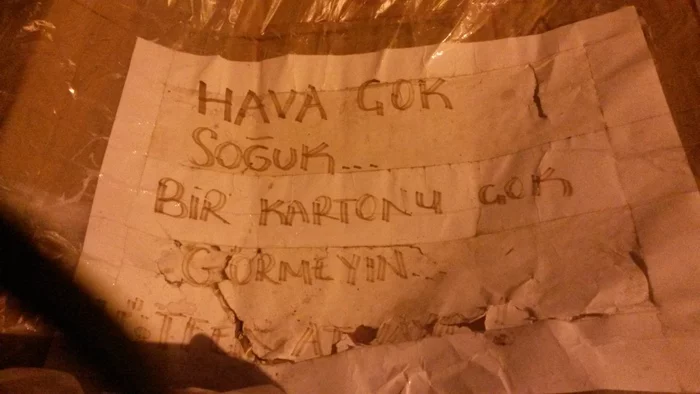 HAVA ÇOK
SOĞUK...
BİR KARTONU ÇOK
GÖRMEYİN...